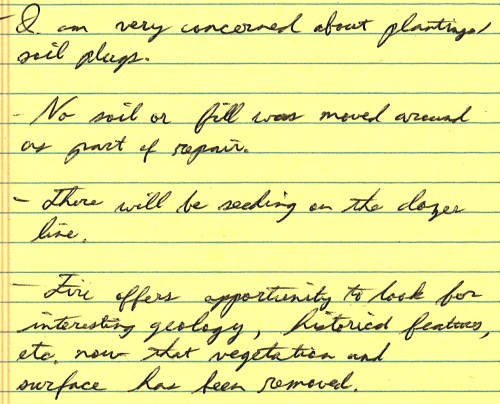 - I am very concerned about plantings/
soil plugs.
- No soil or fill was moved around
as part of repair.
- There will be seeding on the dozer
line.
- Fire offers opportunity to look for
interesting geology, historical features,
etc. now that vegetation and
surface has been removed.